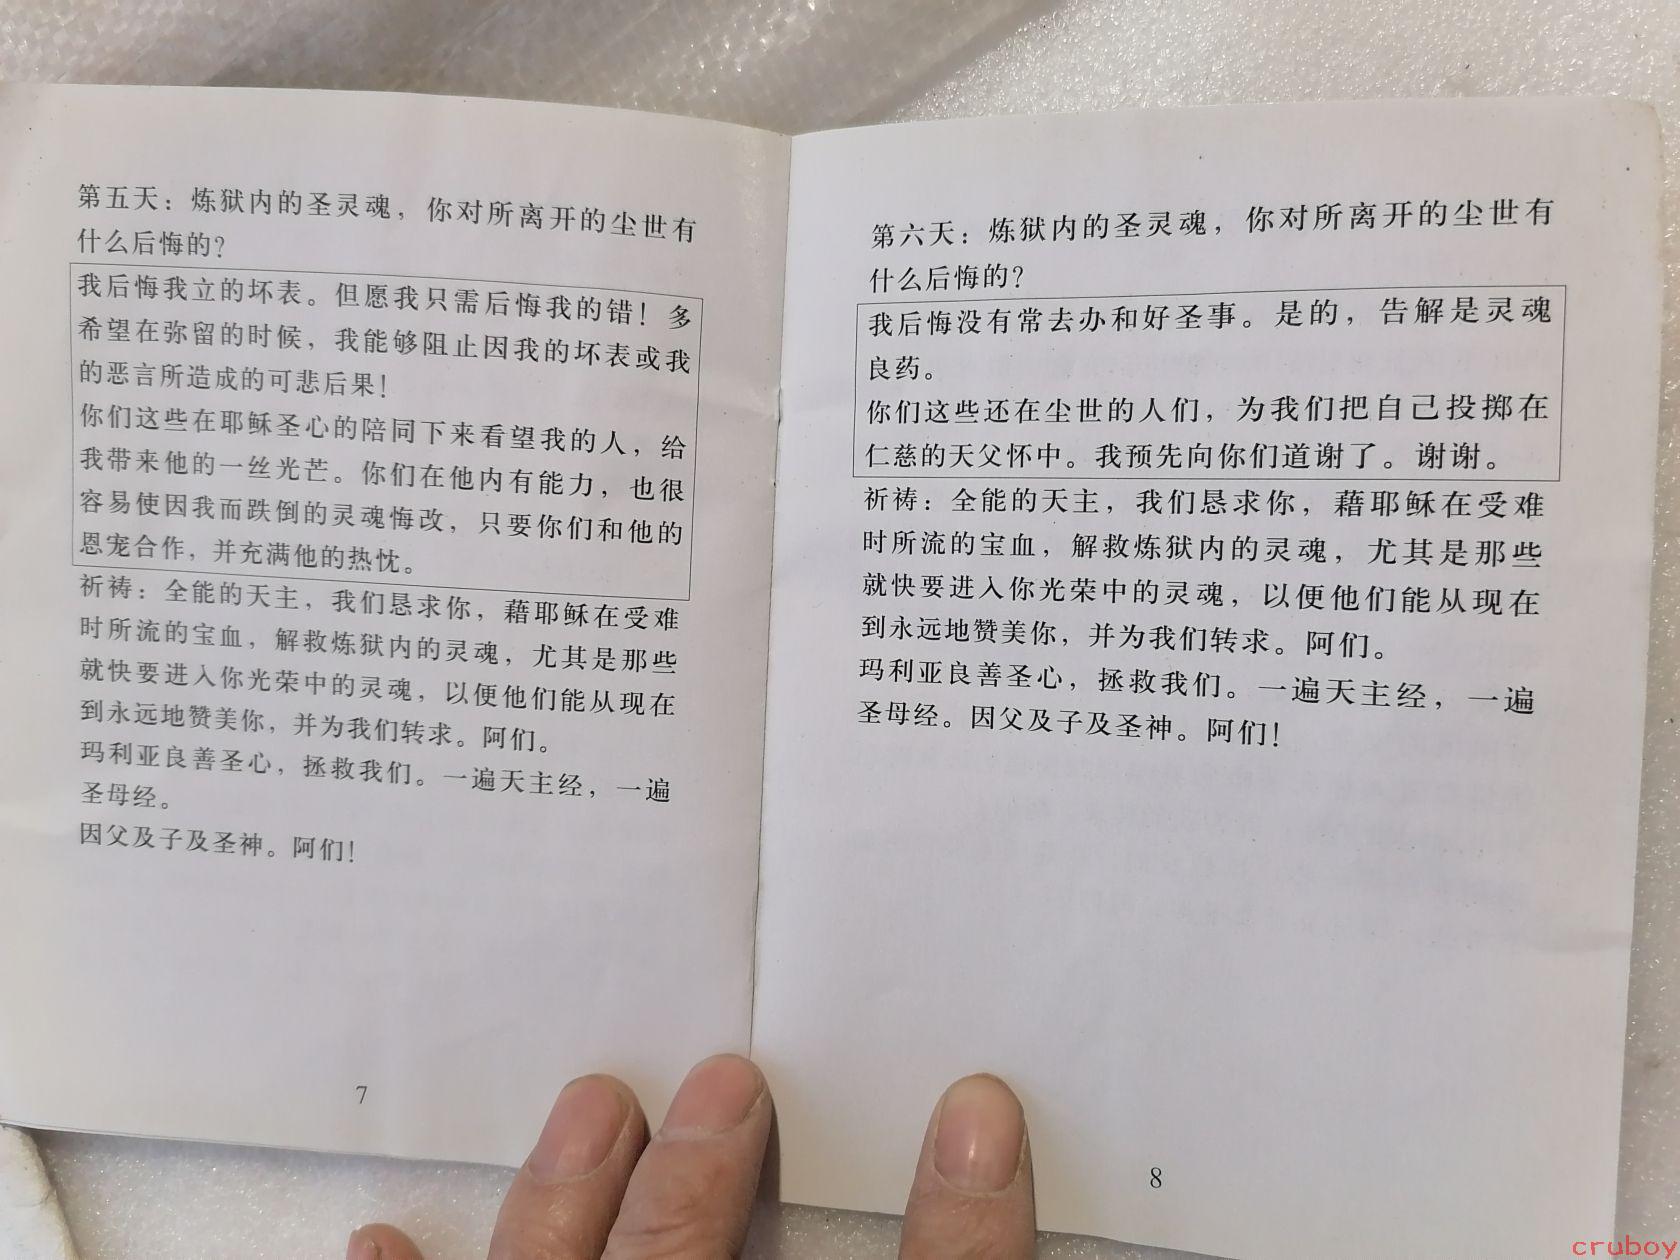 第五天：炼狱内的圣灵魂，你对所离开的尘世有
什么后悔的？
我后悔我立的坏表。但愿我只需后悔我的错！多
希望在弥留的时候，我能够阻止因我的坏表或我
的恶言所造成的可悲后果！
你们这些在耶稣圣心的陪同下来看望我的人，给
我带来他的一丝光芒。你们在他内有能力，也很
容易使因我而跌倒的灵魂悔改，只要你们和他的
恩宠合作，并充满他的热忱。
祈祷：全能的天主，我们恳求你，藉耶稣在受难
时所流的宝血，解救炼狱内的灵魂，尤其是那些
就快要进入你光荣中的灵魂，以便他们能从现在
到永远地赞美你，并为我们转求。阿们。
玛利亚良善圣心，拯救我们。一遍天主经，一遍
圣母经。
因父及子及圣神。阿们！
7
第六天：炼狱内的圣灵魂，你对所离开的尘世有
什么后悔的？
我后悔没有常去办和好圣事。是的，告解是灵魂
良药。
你们这些还在尘世的人们，为我们把自己投掷在
仁慈的天父怀中。我预先向你们道谢了。谢谢。
祈祷：全能的天主，我们恳求你，藉耶稣在受难
时所流的宝血，解救炼狱内的灵魂，尤其是那些
就快要进入你光荣中的灵魂，以便他们能从现在
到永远地赞美你，并为我们转求。阿们。
玛利亚良善圣心，拯救我们。一遍天主经，一遍
圣母经。因父及子及圣神。阿们！
8
cruboy